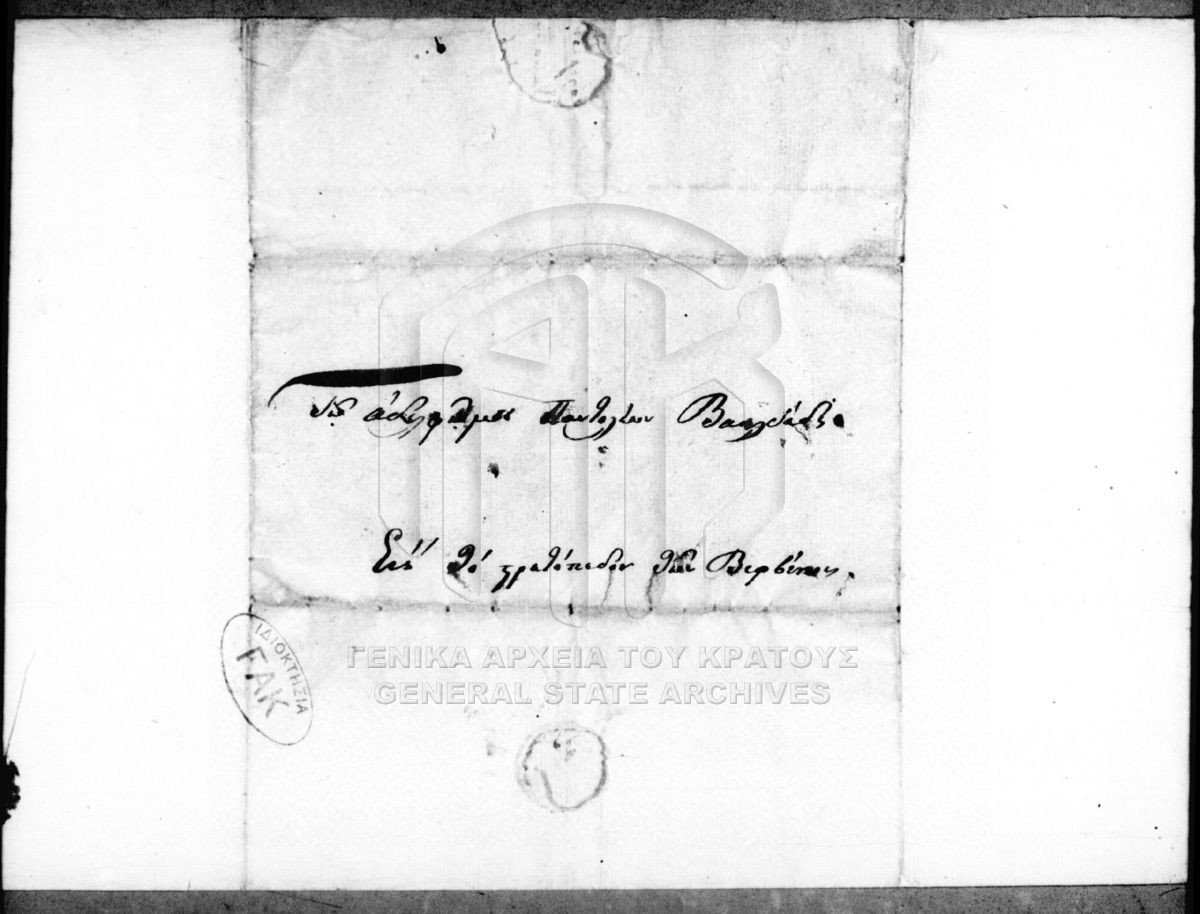 τῷ ἀδελφῷ μου Πανταλέων
Εἰς τὸ στρατόπεδον τῶν Βερβένων.
ΙΔΙΟΚΤΗΣΙΑ
ΓΑΚ
ΓΕΝΙΚΑ ΑΡΧΕΙΑ ΤΟΥ ΚΡΑΤΟΥΣ
GENERAL STATE ARCHIVES